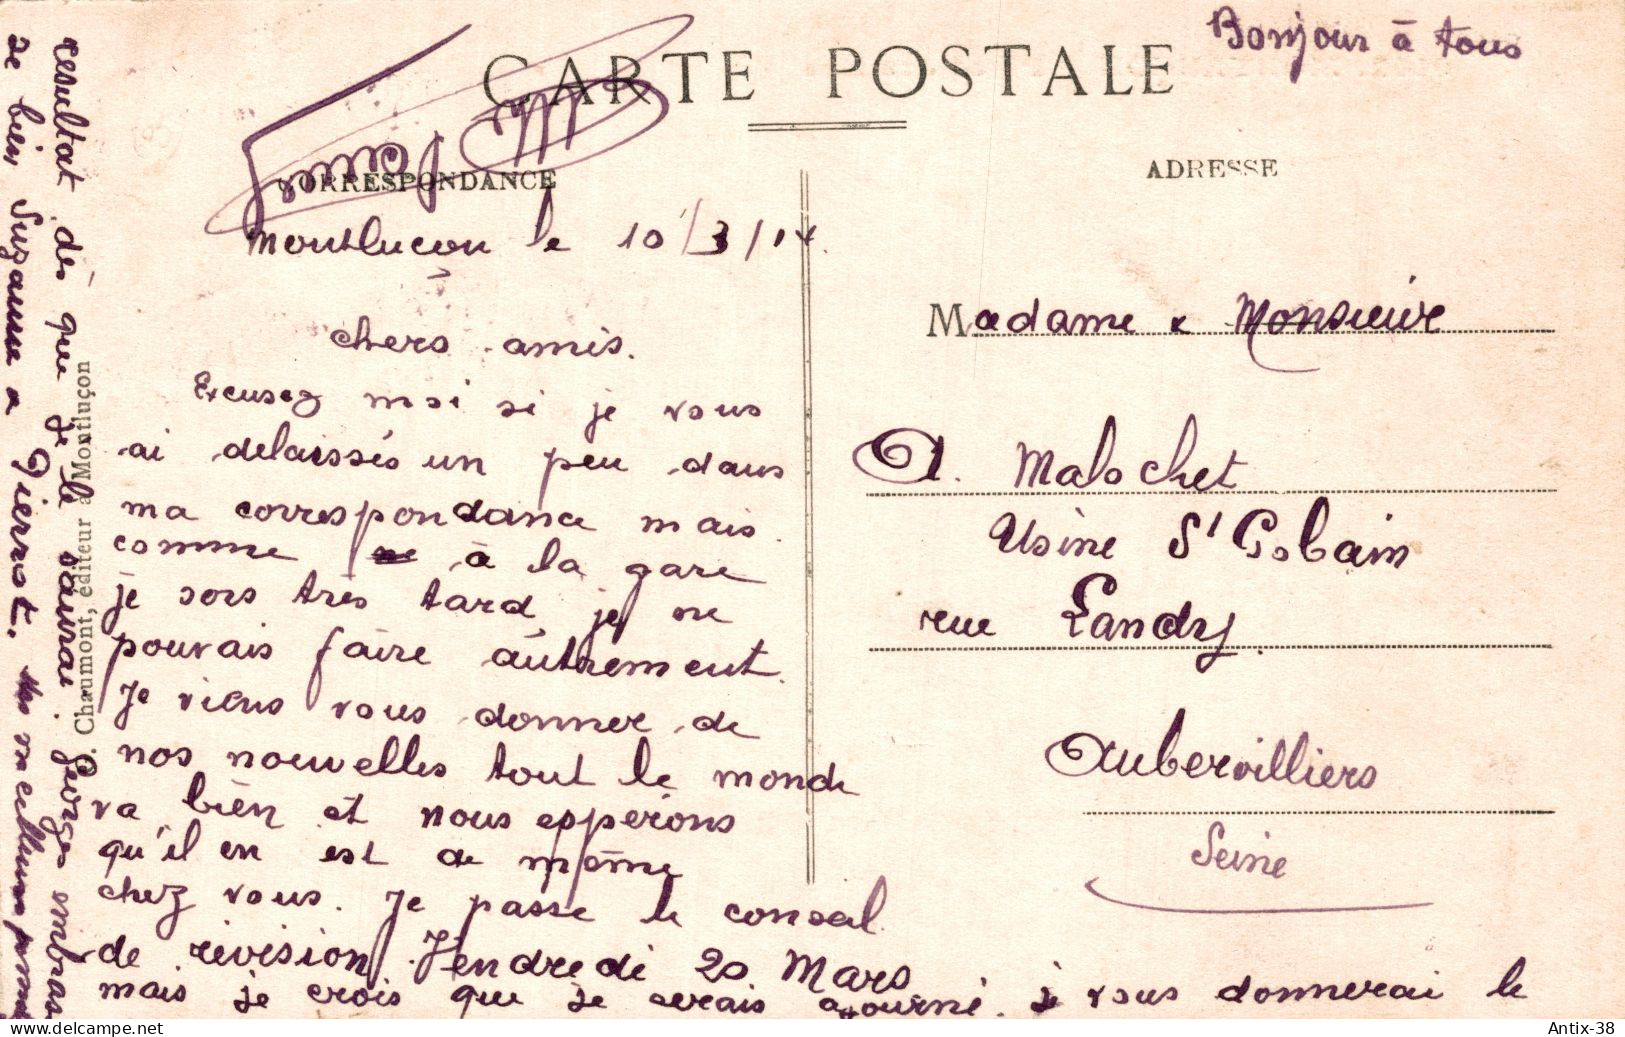 CARTE POSTALE
Bonjour à tous
CORRESPONDANCE
ADRESSE
Montlucon le 10/3/14.
chers amis.
Excusez moi si je vous
ai delaissés un peu dans
ma correspondance mais
comme à la gare
je sors très tard je ne
pouvais faire autrement.
Je viens vous donner de
nos nouvelles tout le monde
va bien et nous espperons
qu'il en est de même
chez vous. Je passe le conseil
de revision Vendredi 20 Mars
mais je crois que je serais ajourné. je vous donnerai le
resultat dès que je le saurai. Georges embrasse
de bien Suzanne a Pierrot.
G. Chaumont, éditeur à Montluçon
Madame & Monsieur
A. Malochet
Usine St Gobain
rue Landry
Aubervilliers
Seine
www.delcampe.net
Antix-38